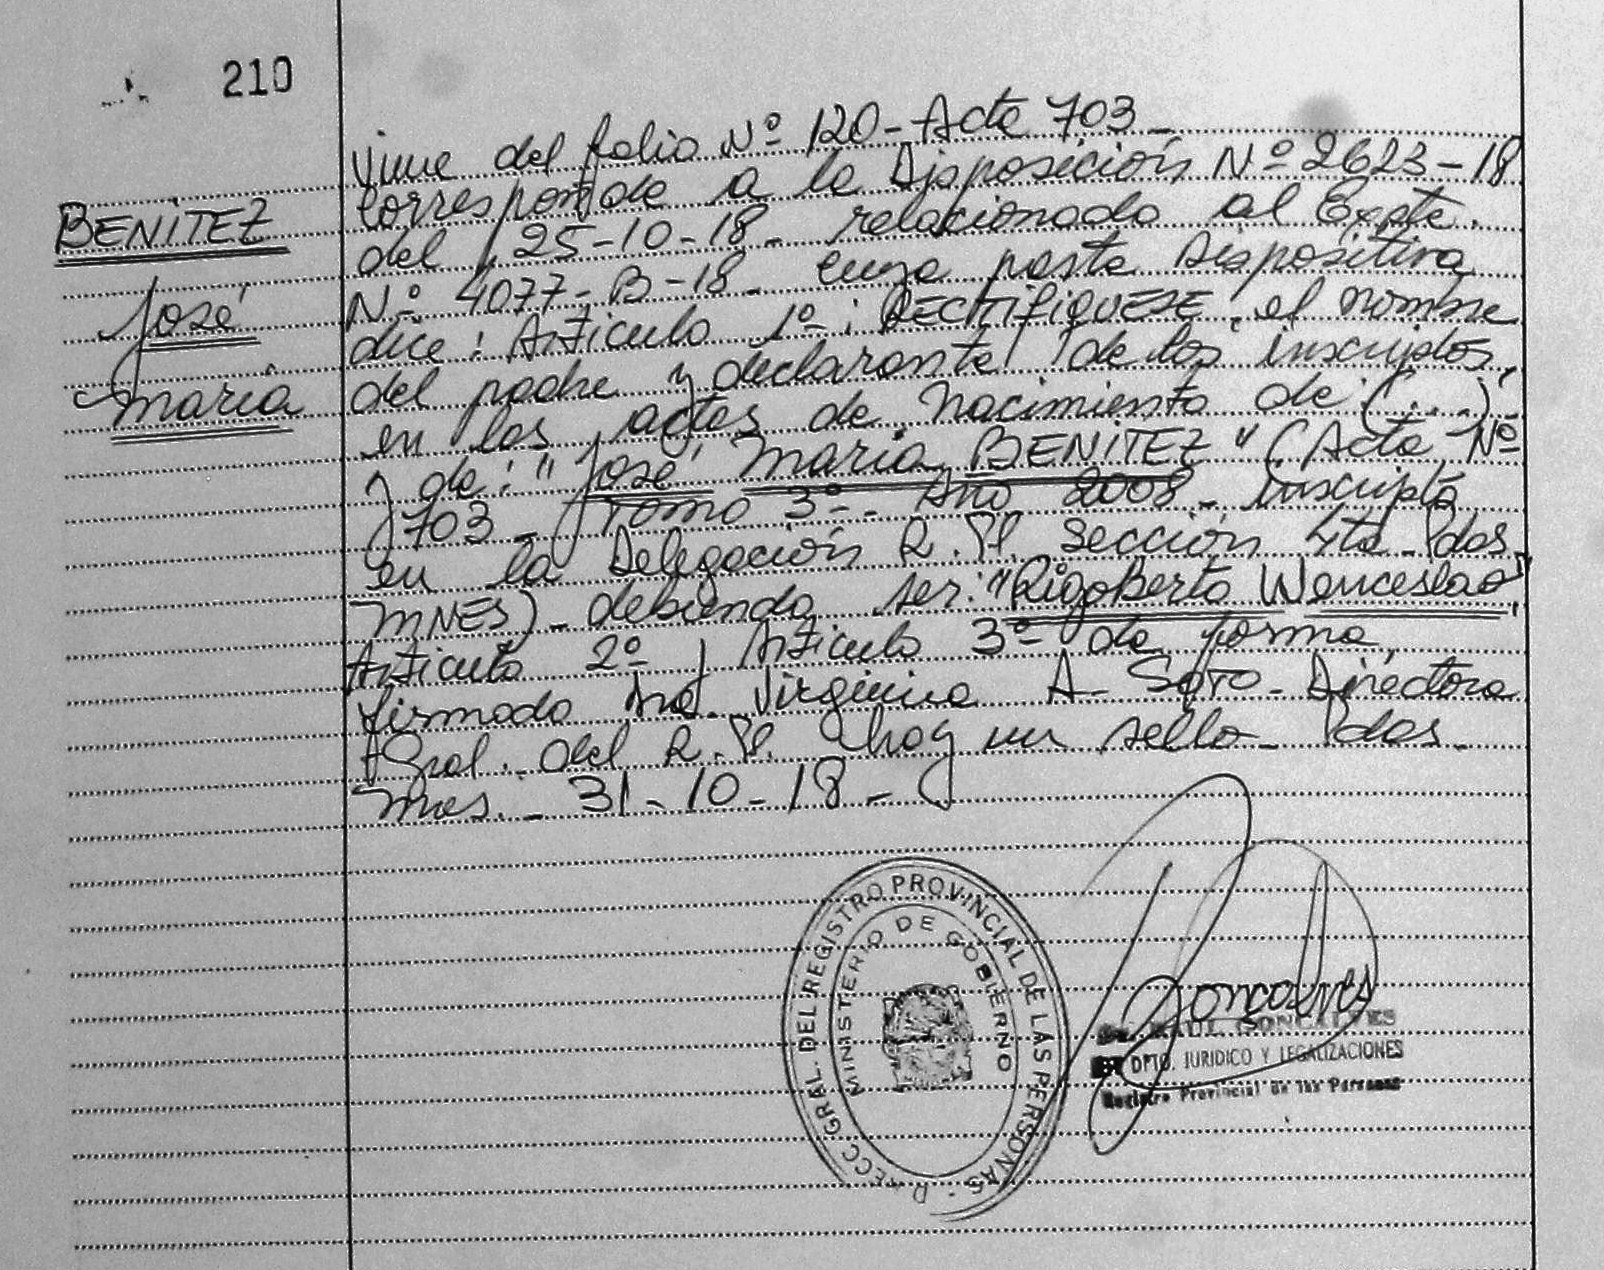 210
BENITEZ
José
María
Viene del folio Nº 120 - Acta 703 -
Corresponde a la Disposición Nº 2623-18
del 25-10-18 - relacionado al Expte.
Nº 4077-B-18 - cuya parte Dispositiva
dice: Artículo 1º: RECTIFIQUESE, el nombre
del padre y declarante de los inscriptos,
en las actas de Nacimiento de (...)
y de: "José María BENITEZ" (Acta Nº
703 - Tomo 3º - Año 2008 - inscripta
en la Delegación R.P. Sección 4ta - Pdas.
MNES) - debiendo ser: "Rigoberto Wenceslao",
Artículo 2º y Artículo 3º de forma
firmado Dra. Virginia A. Soto - Directora
Gral. del R.P. hay un sello - Pdas.
Mnes. - 31-10-18 -
DIRECC. GRAL. DEL REGISTRO PROVINCIAL DE LAS PERSONAS
MINISTERIO DE GOBIERNO
Goncalves
RAUL GONCALVES
DPTO. JURIDICO Y LEGALIZACIONES
Registro Provincial de las Personas